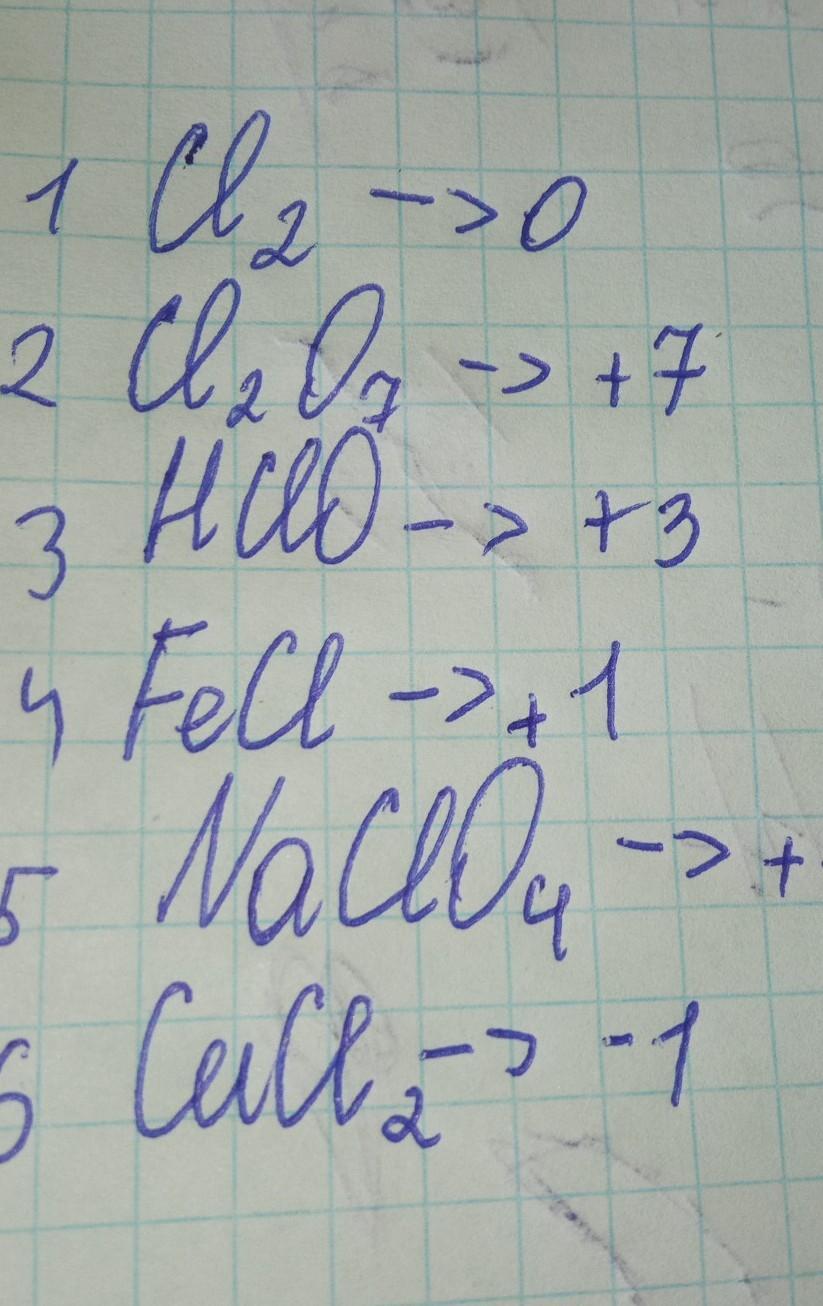 1 Cl₂ -> 0
2 Cl₂O₇ -> +7
3 HClO -> +3
4 FeCl -> +1
5 NaClO₄ -> +
6 CuCl₂ -> -1